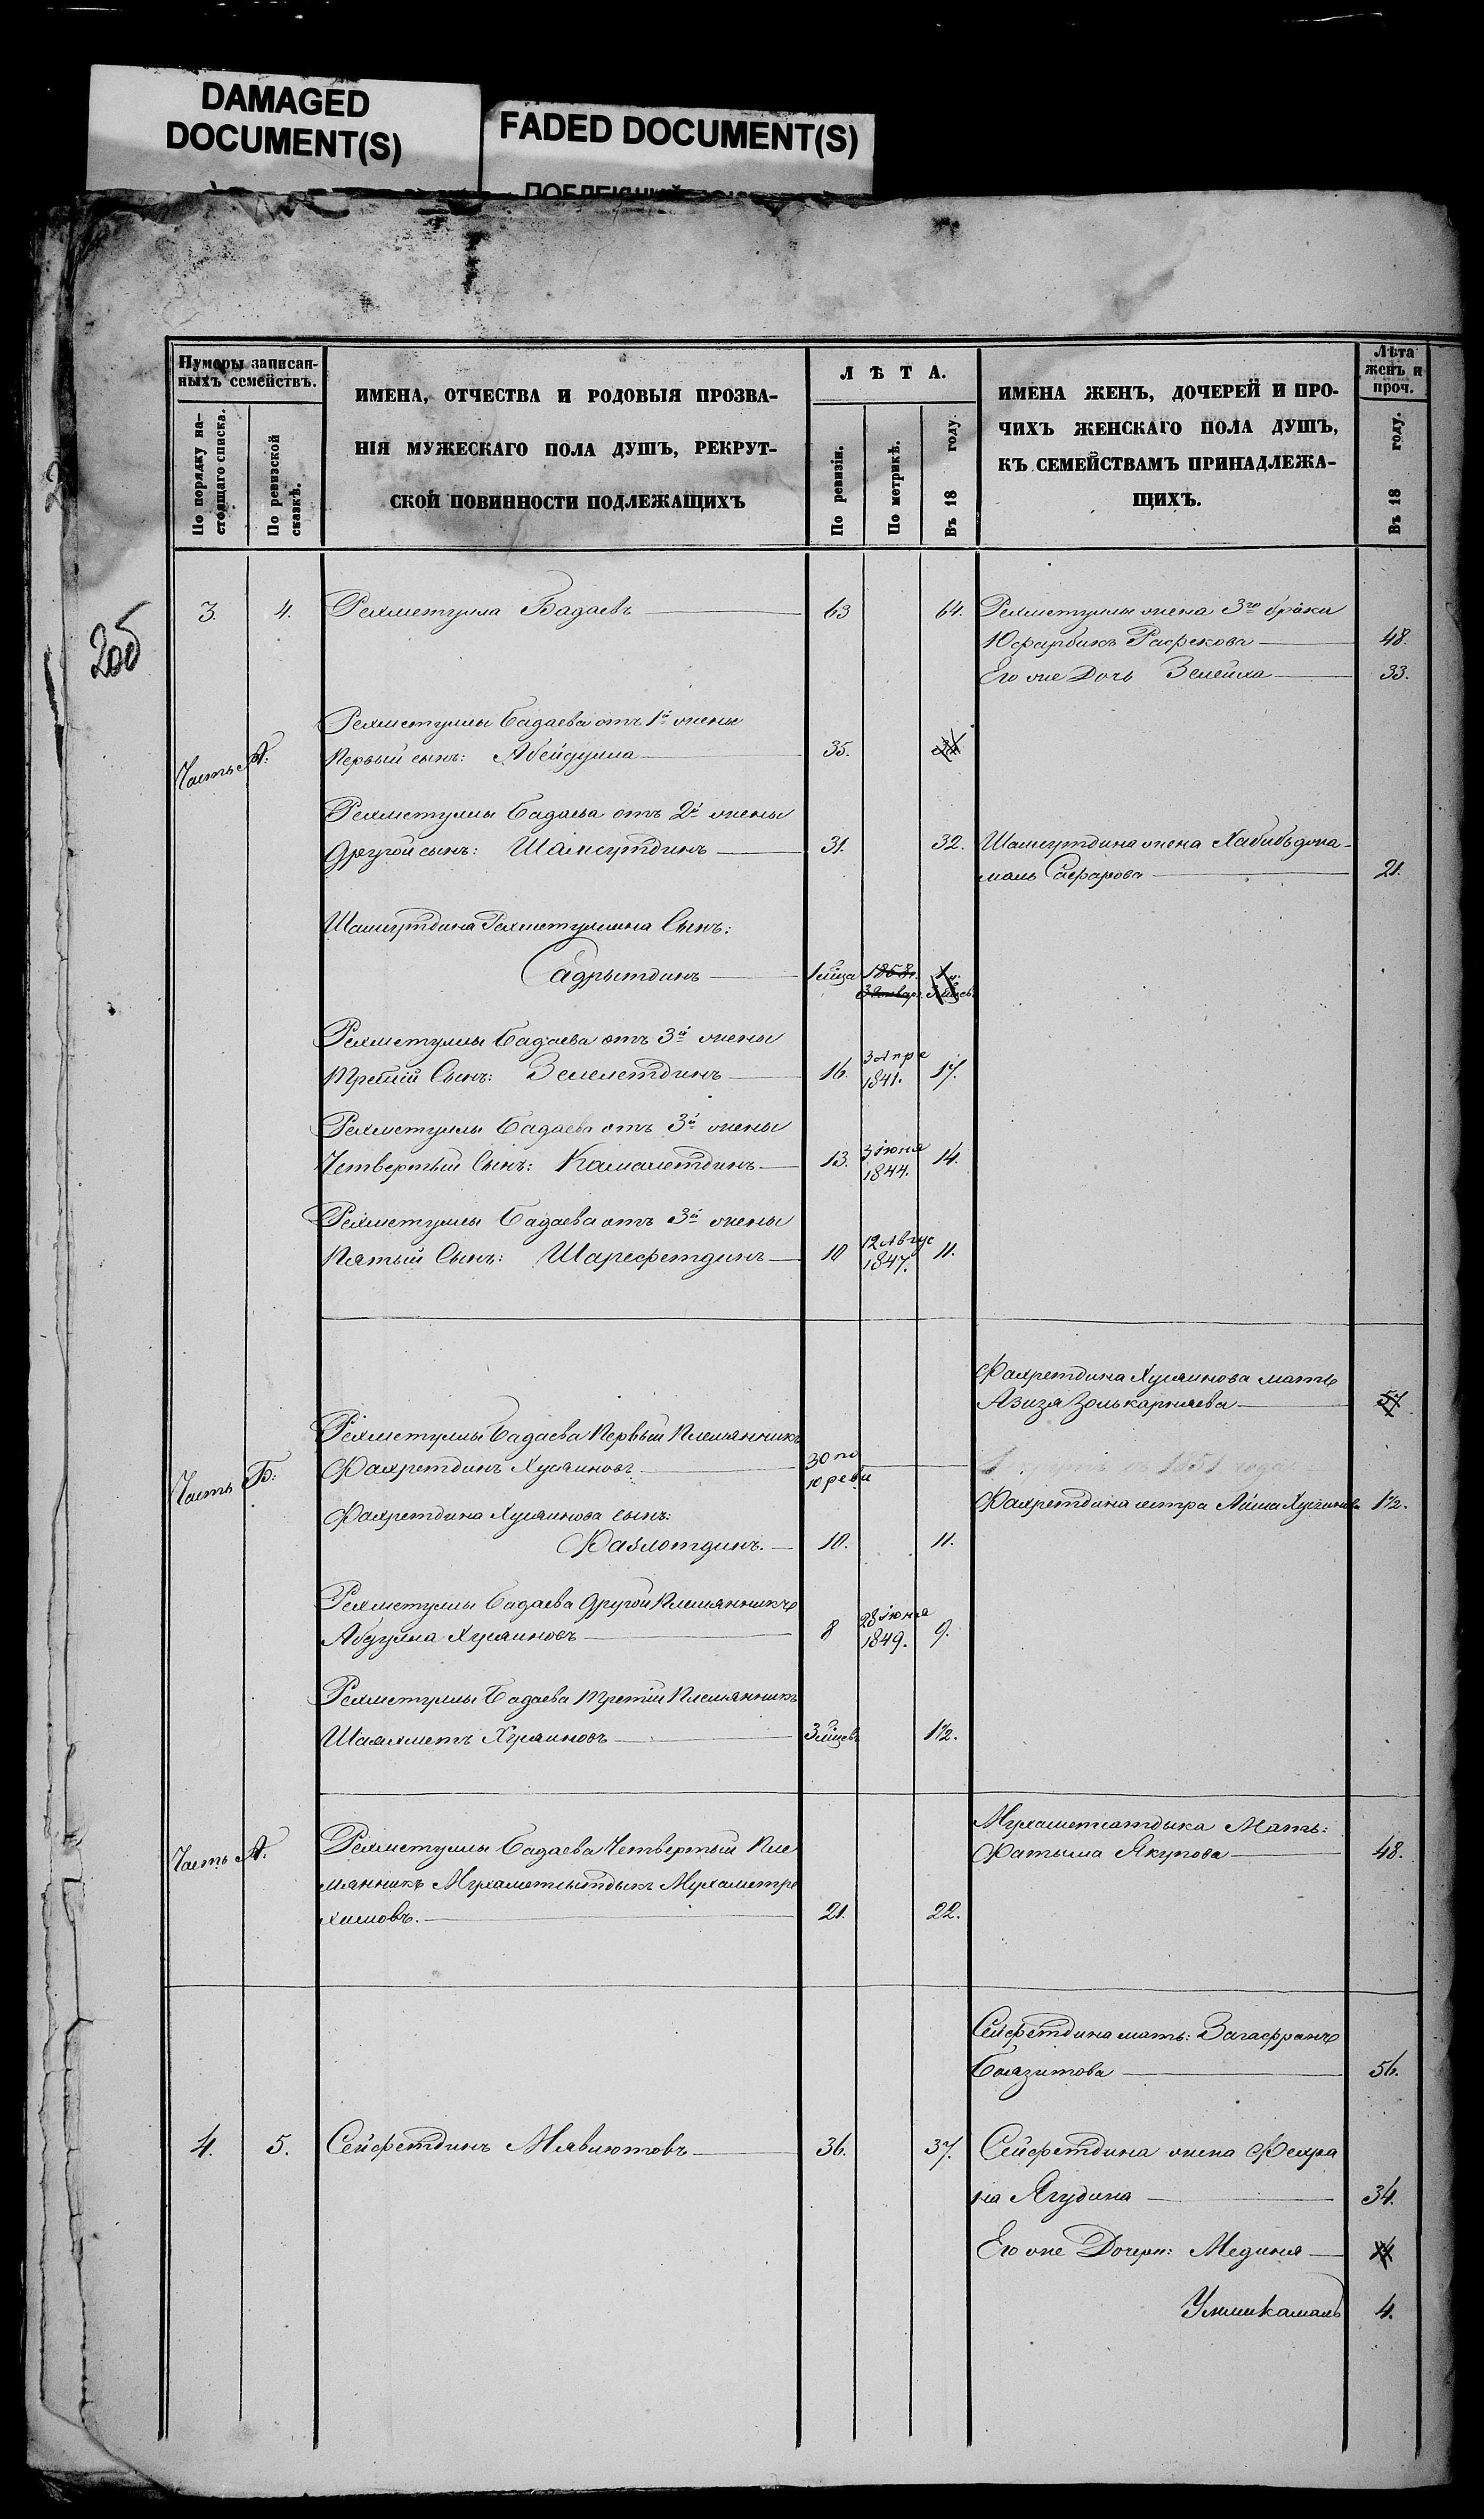 DAMAGED
DOCUMENT(S)
FADED DOCUMENT(S)
Нумеры записан-
ныхъ семействъ.
По порядку на-
стоящаго списка.
По ревизской
сказкѣ.
ИМЕНА, ОТЧЕСТВА И РОДОВЫЯ ПРОЗВА-
НІЯ МУЖЕСКАГО ПОЛА ДУШЪ, РЕКРУТ-
СКОЙ ПОВИННОСТИ ПОДЛЕЖАЩИХЪ
ЛѢТА.
По ревизіи.
По метрикѣ.
Въ 18 году.
ИМЕНА ЖЕНЪ, ДОЧЕРЕЙ И ПРО-
ЧИХЪ ЖЕНСКАГО ПОЛА ДУШЪ,
КЪ СЕМЕЙСТВАМЪ ПРИНАДЛЕЖА-
ЩИХЪ.
Лѣта
женъ и
проч.
Въ 18 году.
3. 4. Рехметулла Бадаевъ 63 64. Рехметуллы жена 3го брака
Юфарбикъ Расфекова 48.
Его же Дочь Зелейха 33.
Рехметуллы Бадаева отъ 1й жены
Часть А: Первый сынъ: Абейдулла 35.
Рехметуллы Бадаева отъ 2й жены
Другой сынъ: Шамсутдинъ 31. 32. Шамсутдина жена Хабибъ
маль Сафарова 21.
Шамсутдина Рехметуллина Сынъ:
Садрытдинъ 1 мѣца 1858 г. 1
Рехметуллы Бадаева отъ 3й жены
Третій Сынъ: Земелетдинъ 16. 3 Апре 1841. 17.
Рехметуллы Бадаева отъ 3й жены
Четвертый Сынъ: Камалетдинъ 13. 3 іюня 1844. 14.
Рехметуллы Бадаева отъ 3й жены
Пятый Сынъ: Шарефетдинъ 10 12 Авгус 1847. 11.
Фахретдина Хусаинова мать
Азизя Золькарняева 57
Рехметуллы Бадаева Первый Племянникъ
Часть Б: Фахретдинъ Хусаиновъ 30 по
10 реви 1851 года
Фахретдина сестра Аиша Хусаинова 1½.
Фахретдина Хусаинова сынъ:
Фазлотдинъ. 10. 11.
Рехметуллы Бадаева Другой Племянникъ
Абдулла Хусаиновъ 8 28 іюня 1849. 9.
Рехметуллы Бадаева Третій Племянникъ
Шаяхметъ Хусаиновъ 3 мѣцевъ 1½.
Мухаметсатдыка Мать:
Фатыма Якупова 48.
Часть А: Рехметуллы Бадаева Четвертый Пле
мянникъ Мухаметсытдыкъ Мухаметре
химовъ. 21. 22.
Сейфетдина мать: Загафранъ
Баязитова 56.
4. 5. Сейфетдинъ Мявлютовъ 36. 37. Сейфетдина жена Фехра
на Ягудина 34.
Его же Дочери: Мединя
Уммикамаль 4.